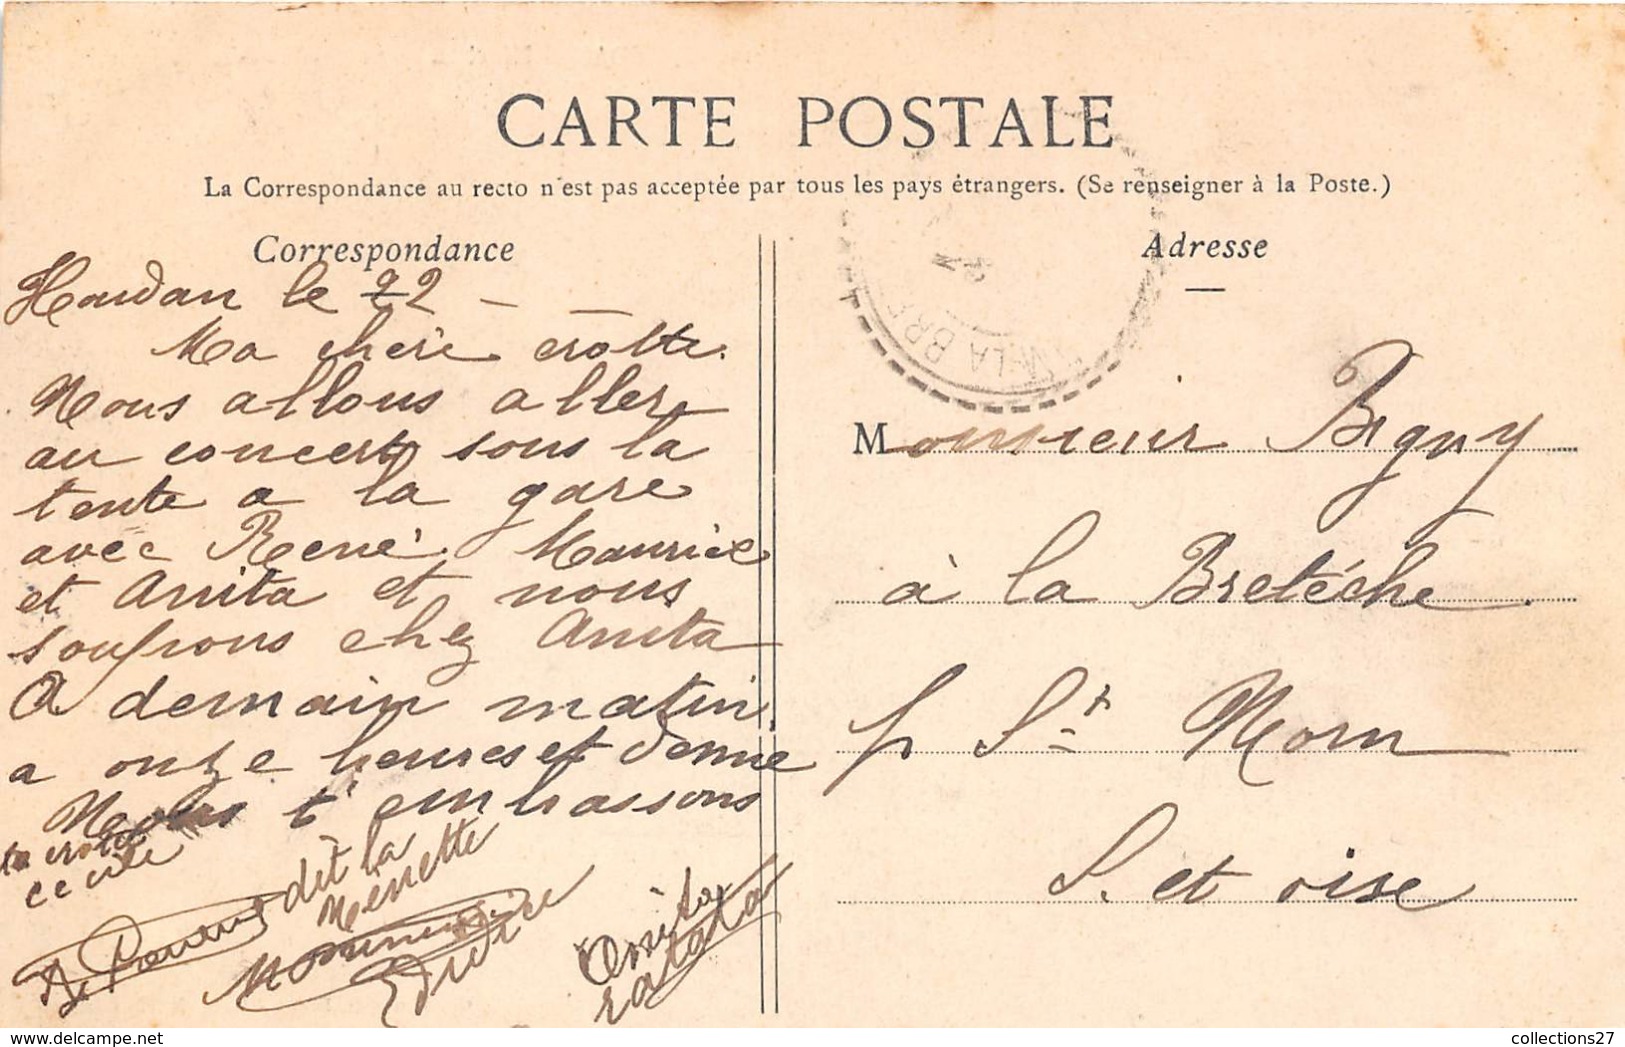 CARTE POSTALE
La Correspondance au recto n'est pas acceptée par tous les pays étrangers. (Se renseigner à la Poste.)
Correspondance
Houdan le 22 —
Ma cherie crotte.
Nous allons aller
au concert sous la
tente a la gare
avec René, Maurice
et Anita et nous
soupons chez Anita
A demain matin
a onze heures et demie
Nous t'embrassons
ta crotte
cecile
dit la
Nenette
Anita
ratata
Adresse
LA BR
Monsieur Bigny
à la Bretéche.
p St Nom
S. et oise
collections27